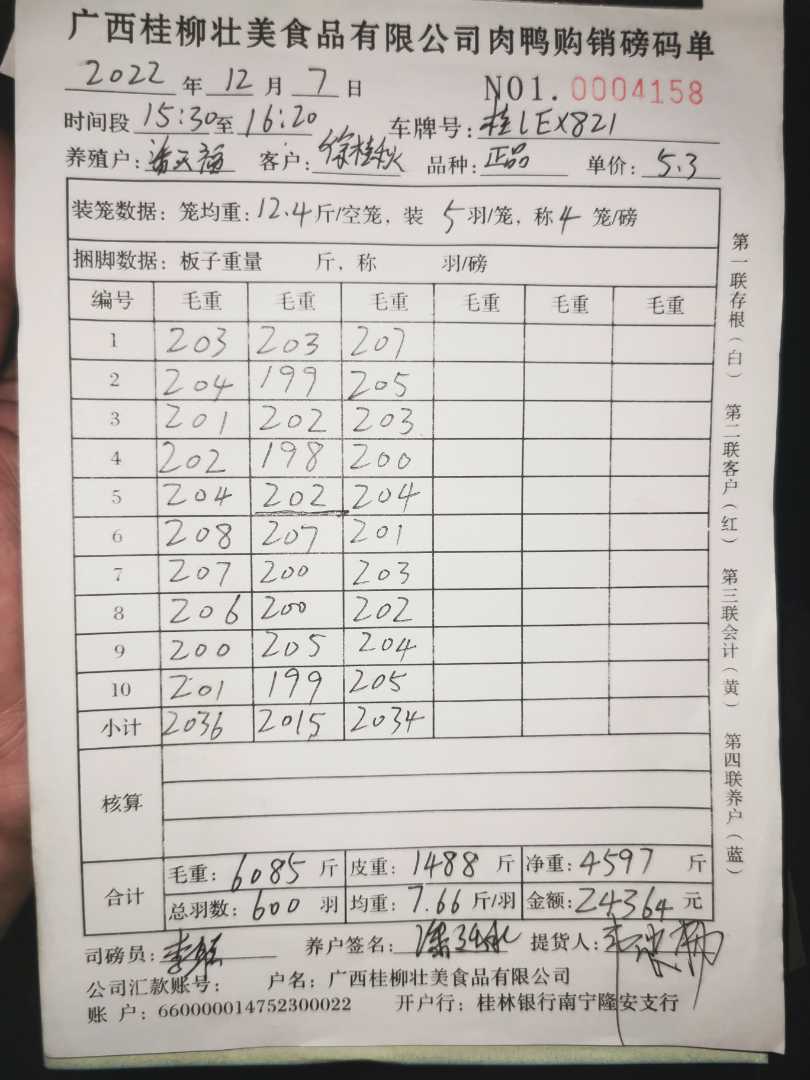 广西桂柳壮美食品有限公司肉鸭购销磅码单
2022 年 12 月 7 日 NO1. 0004158
时间段 15:30 至 16:20 车牌号: 桂LEX821
养殖户: 客户: 徐桂秋 品种: 正品 单价: 5.3
装笼数据: 笼均重: 12.4 斤/空笼, 装 5 羽/笼, 称 4 笼/磅
捆脚数据: 板子重量 斤, 称 羽/磅
编号 毛重 毛重 毛重 毛重 毛重 毛重
1 203 203 207
2 204 199 205
3 201 202 203
4 202 198 200
5 204 202 204
6 208 207 201
7 207 200 203
8 206 200 202
9 200 205 204
10 201 199 205
小计 2036 2015 2034
核算
合计
毛重: 6085 斤 皮重: 1488 斤 净重: 4597 斤
总羽数: 600 羽 均重: 7.66 斤/羽 金额: 24364 元
司磅员: 养户签名: 提货人:
公司汇款账号: 户名: 广西桂柳壮美食品有限公司
账 户: 660000014752300022 开户行: 桂林银行南宁隆安支行
第一联存根(白) 第二联客户(红) 第三联会计(黄) 第四联养户(蓝)